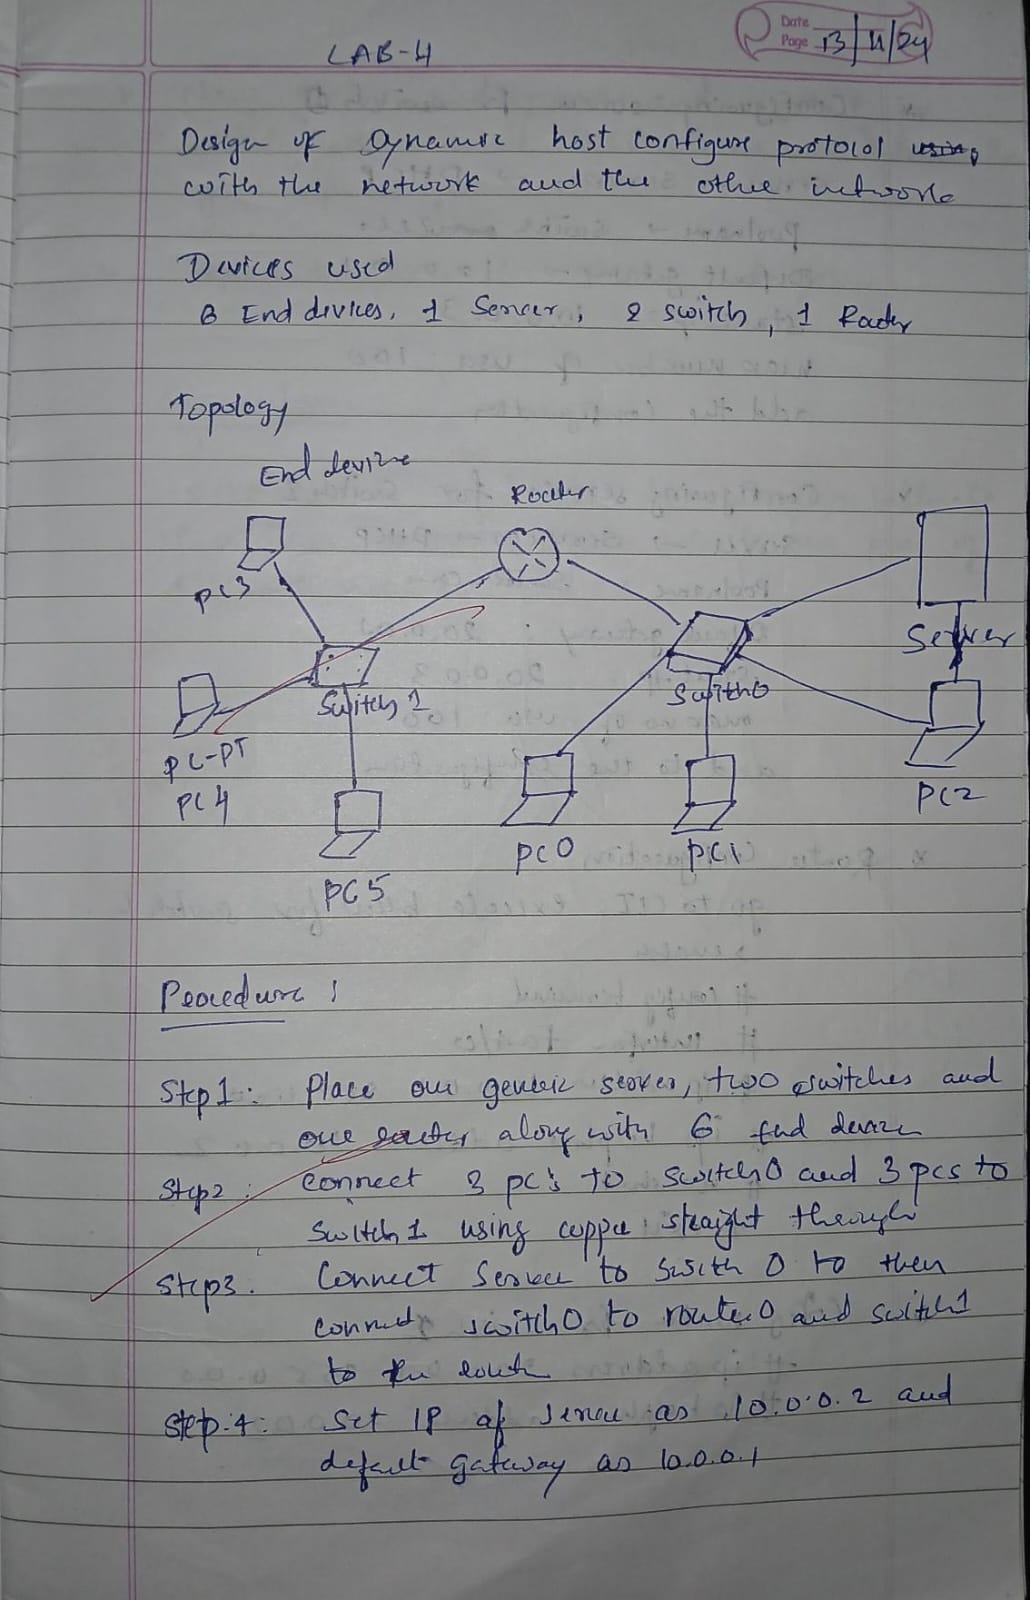 LAB-4
Date
Page 13/11/24
Design of Dynamic host configure protolol using
with the network and the othee network
Devices used
6 End devices, 1 Server, 2 switch, 1 Router
Topology
End device
Router
PC3
Server
Switch 1
Switch0
PC-PT
PC4
PC2
PC0
PC1
PC5
Procedure :
Step1: Place one generic server, two switches and
one router along with 6 End device
Step2: connect 3 pc's to switch0 and 3 pcs to
switch 1 using copper straight through
Step3. Connect Server to switch 0 to then
connect switch0 to router0 and switch1
to the router
Step.4: Set IP of server as 10.0.0.2 and
default gateway as 10.0.0.1